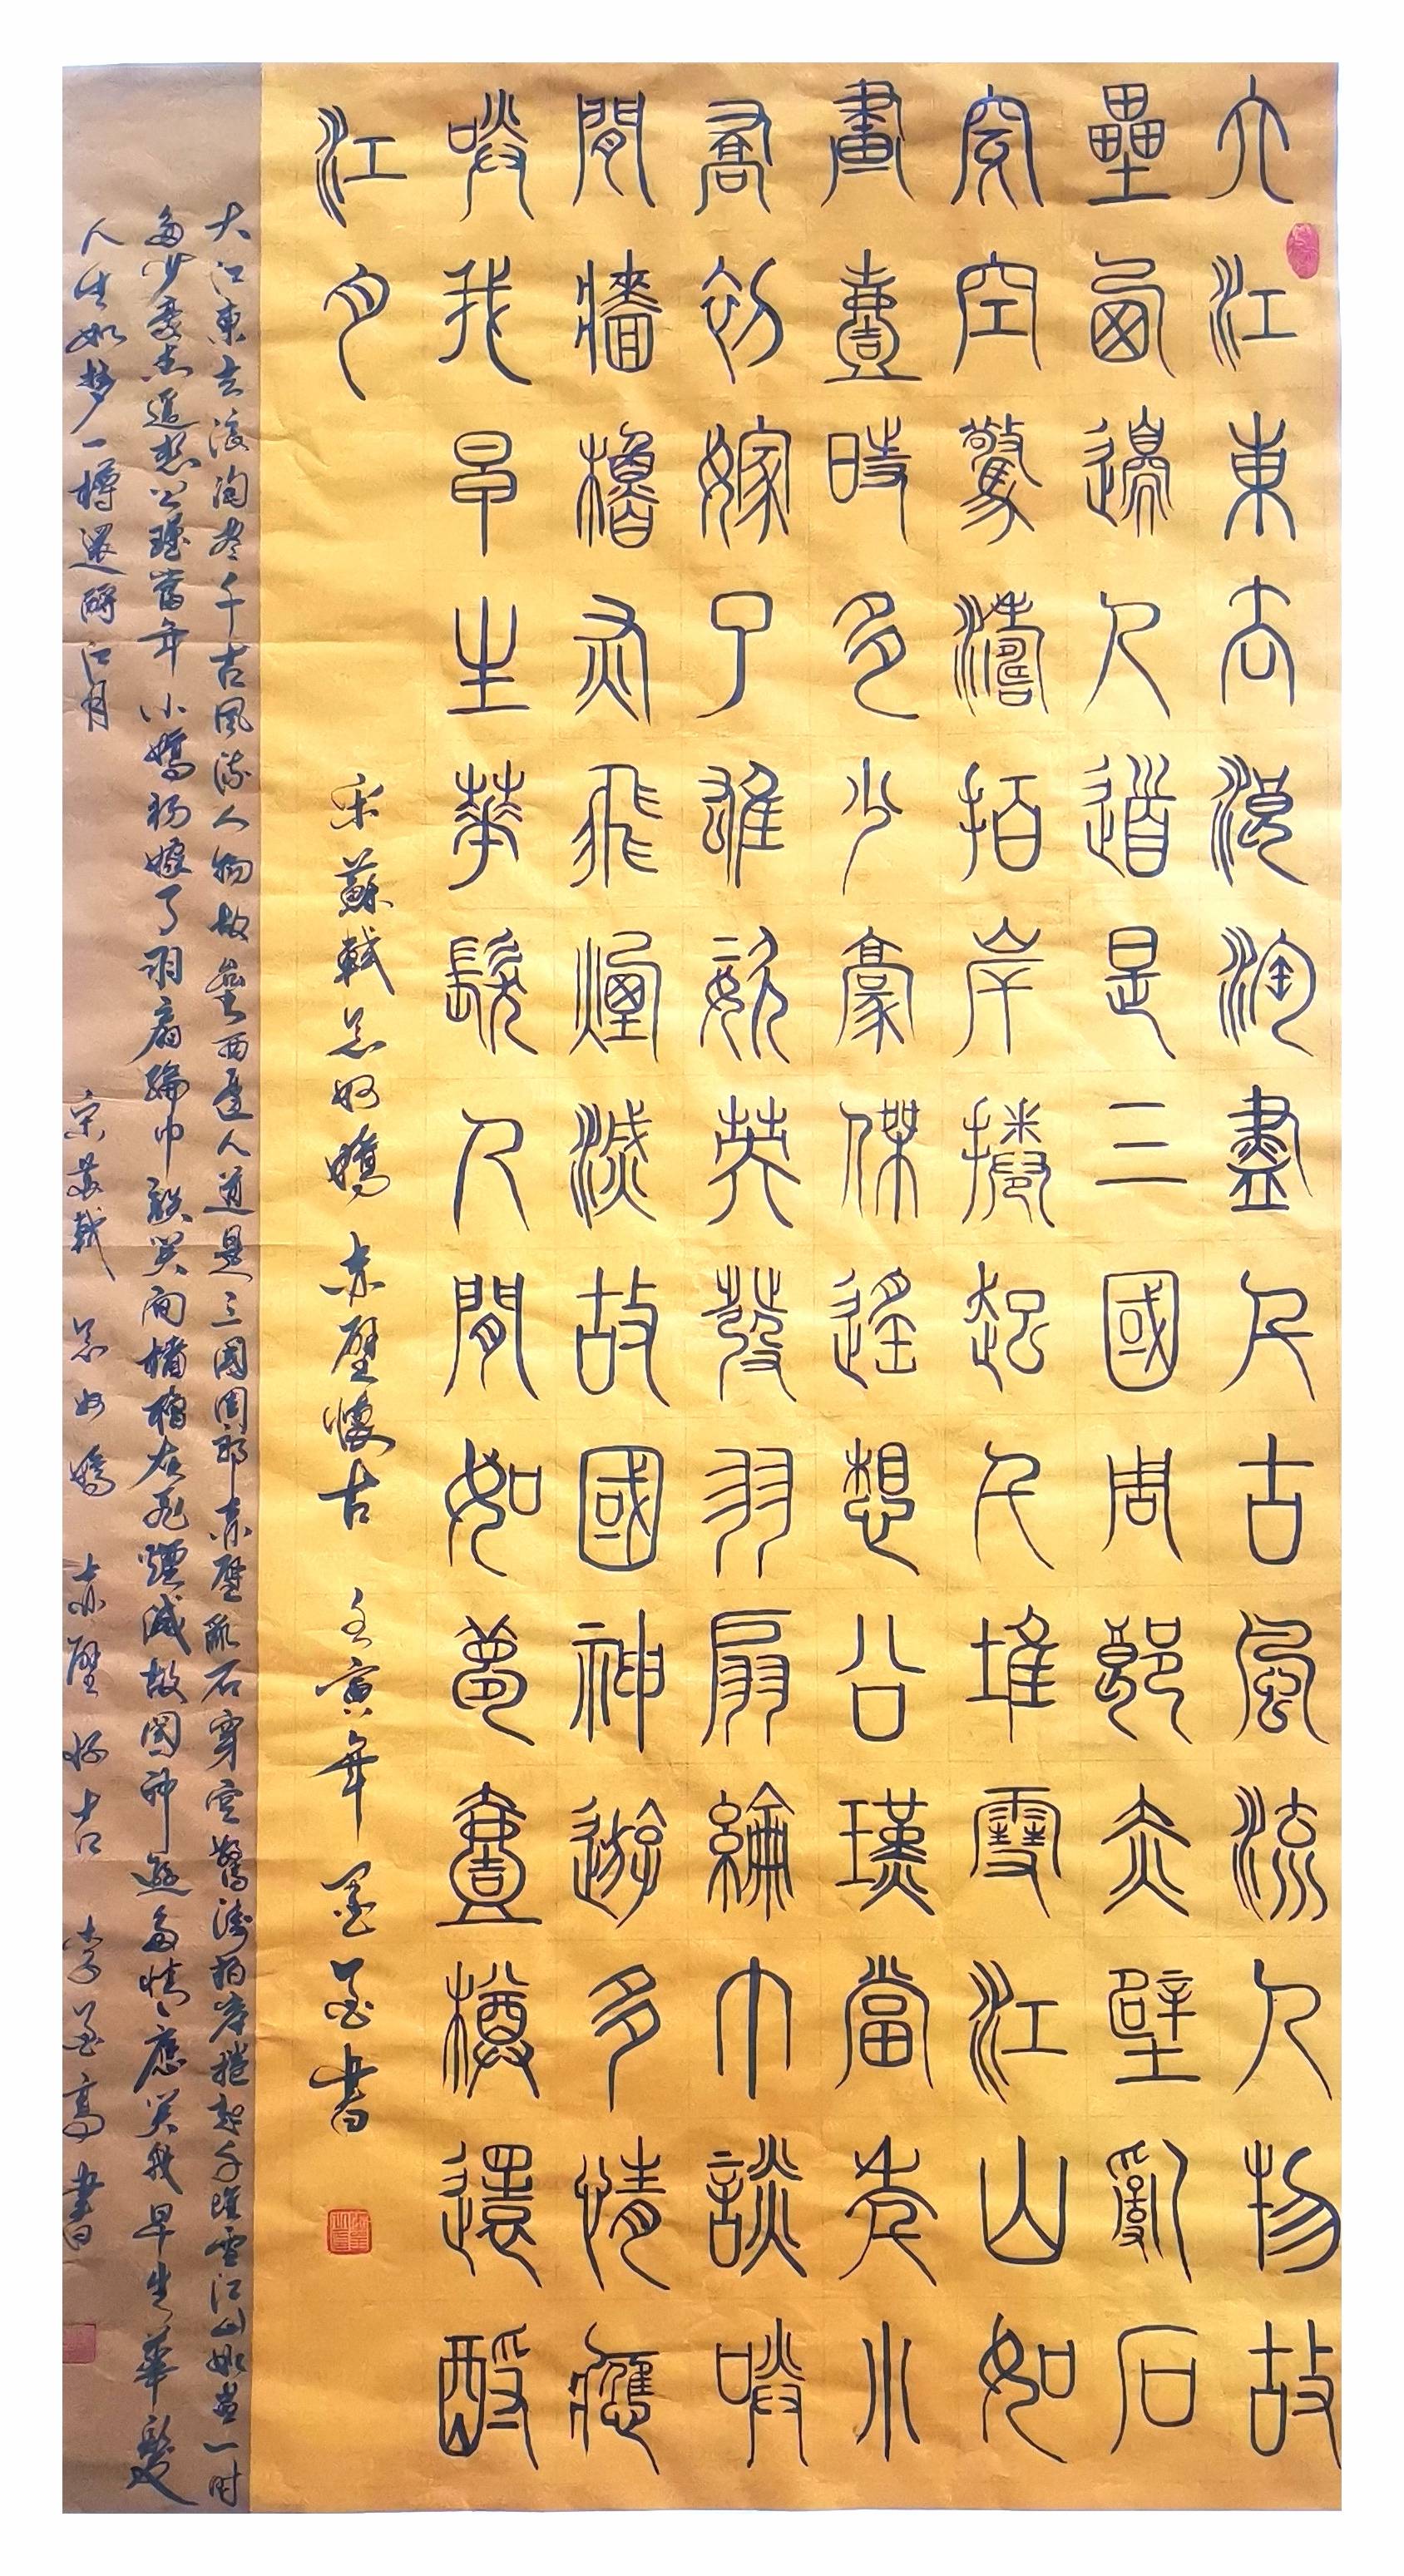 大江東去浪淘盡千古風流人物故
壘西邊人道是三國周郎赤壁亂石
穿空驚濤拍岸捲起千堆雪江山如
畫壹時多少豪傑遙想公瑾當年小
喬初嫁了雄姿英發羽扇綸巾談咲
間牆櫓灰飛煙滅故國神遊多情應
咲我早生華髮人間如夢壹樽還酹
江月
宋蘇軾念奴嬌赤壁懷古 壬寅年 墨書
大江東去浪淘尽千古風流人物故壘西邊人道是三國周郎赤壁亂石穿空驚濤拍岸捲起千堆雪江山如畫一時
多少豪杰遥想公瑾當年小嬌初嫁了羽扇綸巾談笑间檣櫓灰飛煙滅故國神遊多情應笑我早生華髮
人生如梦一樽還酹江月 宋蘇軾 念奴嬌 赤壁怀古 李高書